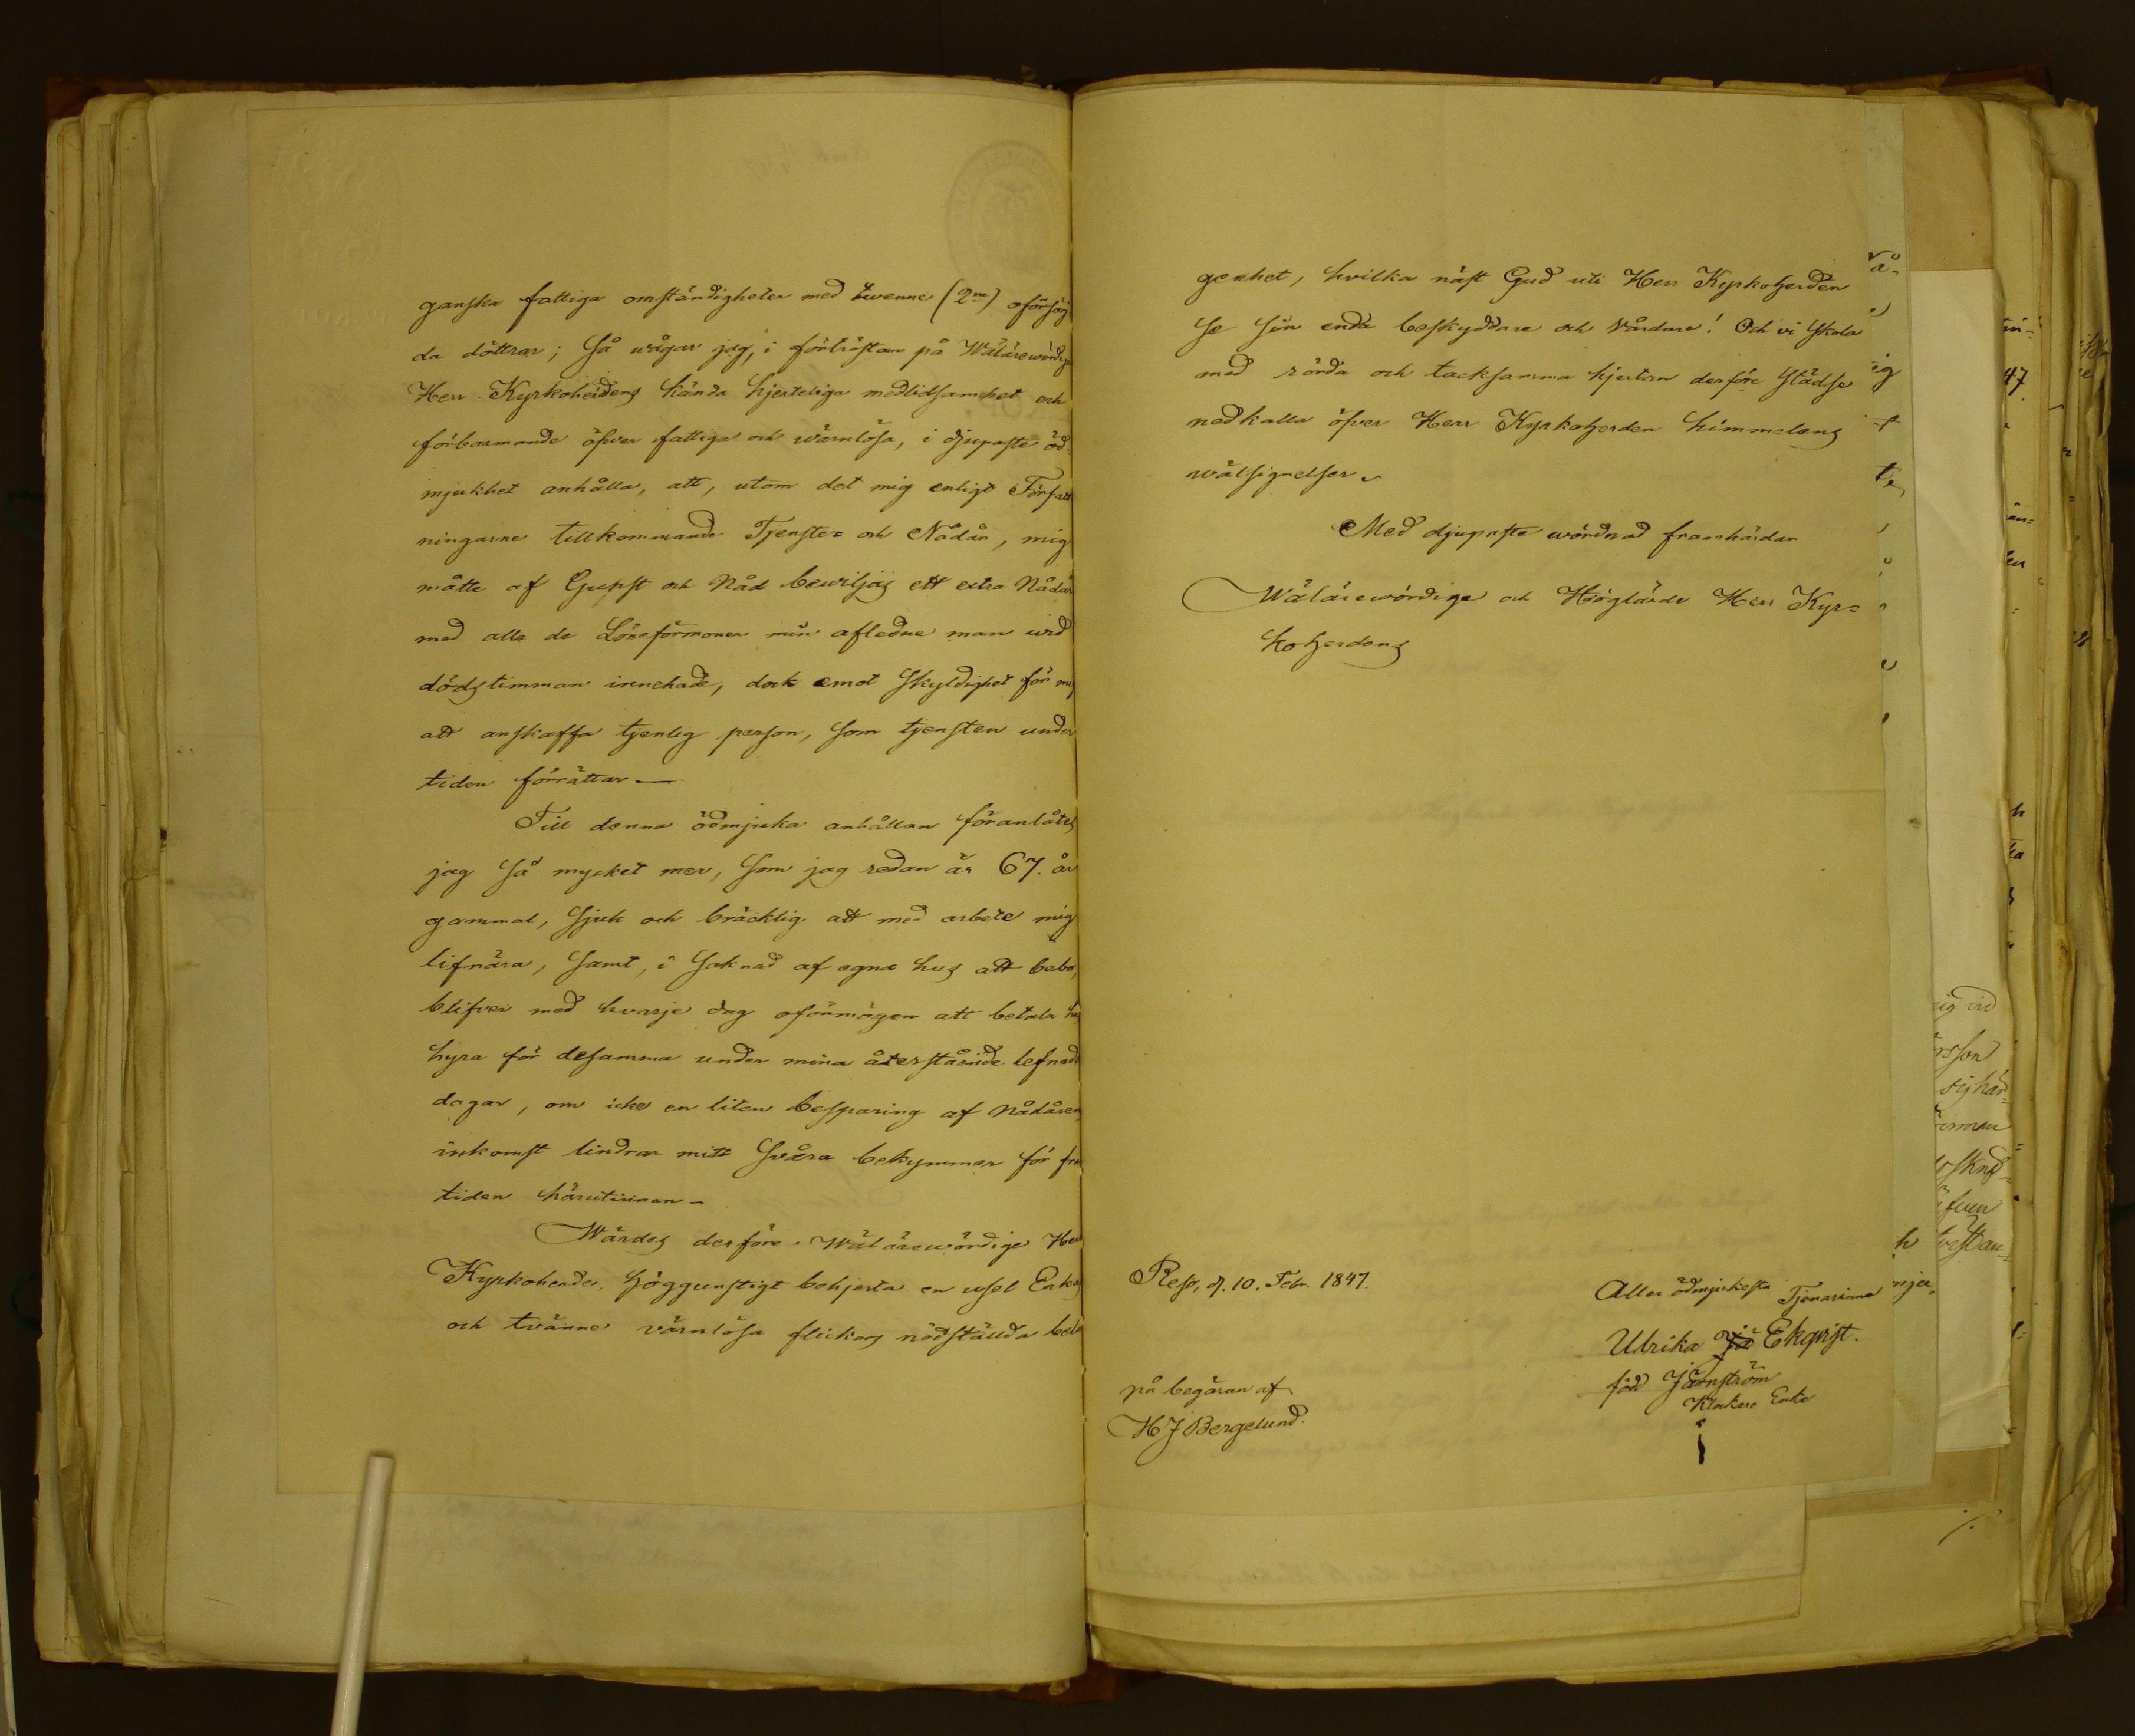 ganska fattiga omständigheter med twenne (2ne) oförsörj
da döttrar; så wågar jag, i förtröstan på Wälärewördige
Herr Kyrkoherdens kända hjerteliga medlidsamhet och
förbarmande öfwer fattiga och wärnlösa, i djupaste öd-
mjukhet anhålla, att, utom det mig enligt Författ
ningarne tillkommande Tjenste- och Nådår, mig
måtte af Gunst och Nåd bewiljas ett extra Nådår
med alla de Löneförmoner min aflidne man wid
dödstimman innehade, dock emot skyldighet för mig
att anskaffa tjenlig person, som tjensten under
tiden förrättar —
Till denna ödmjuka anhållan föranlåtes
jag så mycket mer, som jag redan är 67. år
gammal, sjuk och bräcklig att med arbete mig
lifnära, samt, i saknad af egna hus att bebo,
blifver med hvarje dag oförmögen att betala
hyra för desamma under mina återstående lefnads
dagar, om icke en liten besparing af nådårens
inkomst lindrar mitt svåra bekymmer för fram
tiden härutinnan —
Wärdes derföre Wälärewördige Herr
Kyrkoherde, höggunstigt behjerta en usel Enkas
och tvänne värnlösa flickors nödställda belä
genhet, hvilka näst Gud uti Herr Kyrkoherden
se sin enda beskyddare och vårdare! Och vi skola
med rörda och tacksamma hjertan derföre städse
nedkalla öfver Herr Kyrkoherden himmelens
wälsignelser.
Med djupaste wördnad framhärdar
Wälärewördige och Höglärde Herr Kyr-
koherdens
Reso, d. 10. Febr. 1847.
Aller ödmjukesta Tjenarinna
Ulrika Jä Ekqvist.
född Järnström
Klockare Enka
på begäran af
H J Bergelund.